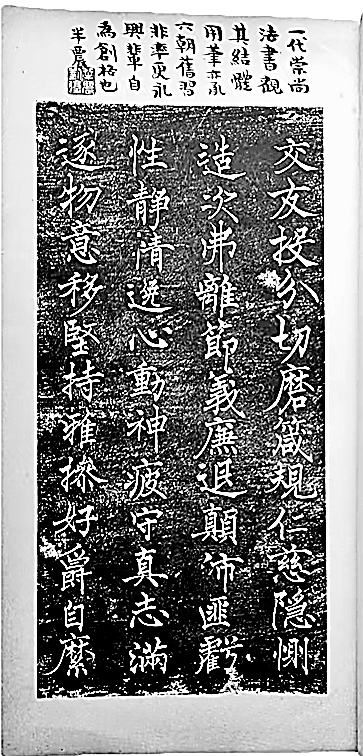 一代崇尚
法書觀
其結體
用筆亦承
六朝舊習
非率更永
興輩自
為創格也
半農
交友投分切磨箴規仁慈隐惻
造次弗離節義廉退顛沛匪虧
性静情逸心動神疲守真志滿
逐物意移堅持雅操好爵自縻